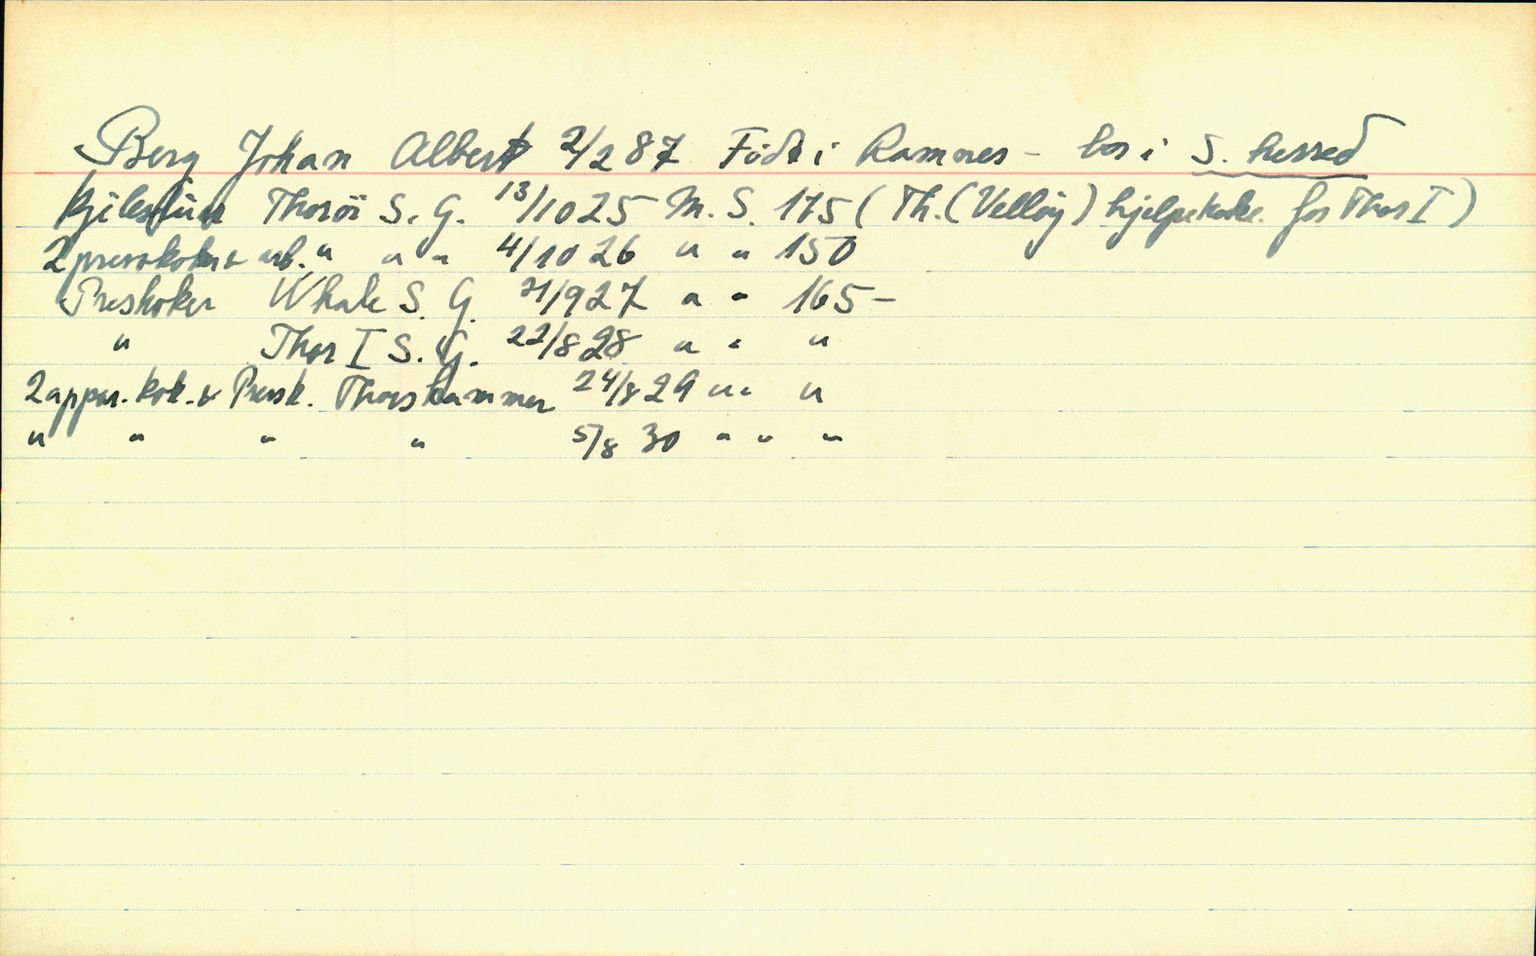 Berg Johan Albert 2/2 87 Födt i Ramnes - bor i S. herred
Kjelesjuer Thoröi S. G. 13/10 25 M. S. 175 (Th. (Vellöy) hjelpekoke. for Thor I)
2 pressekoker & arb. " " " 4/10 26 " " 150
Preskoker Whale S. G. 21/9 27 " " 165 -
" Thor I S. G. 22/8 28 " " "
2 appar. kok. & Pressk. Thorshammer 24/8 29 " " "
" " " " 5/8 30 " " "